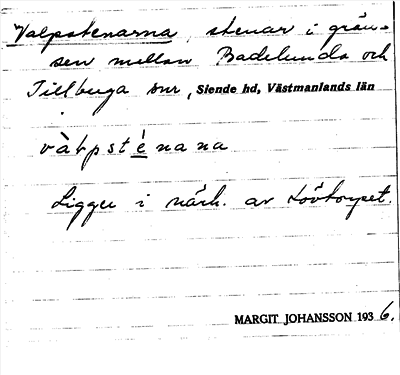 Valpstenarna, stenar i grän-
sen mellan Badelunda och
Tillberga snr, Siende hd, Västmanlands län
vàlpsté̱nana
Ligger i närh. av Lövtorpet.
MARGIT JOHANSSON 1936.